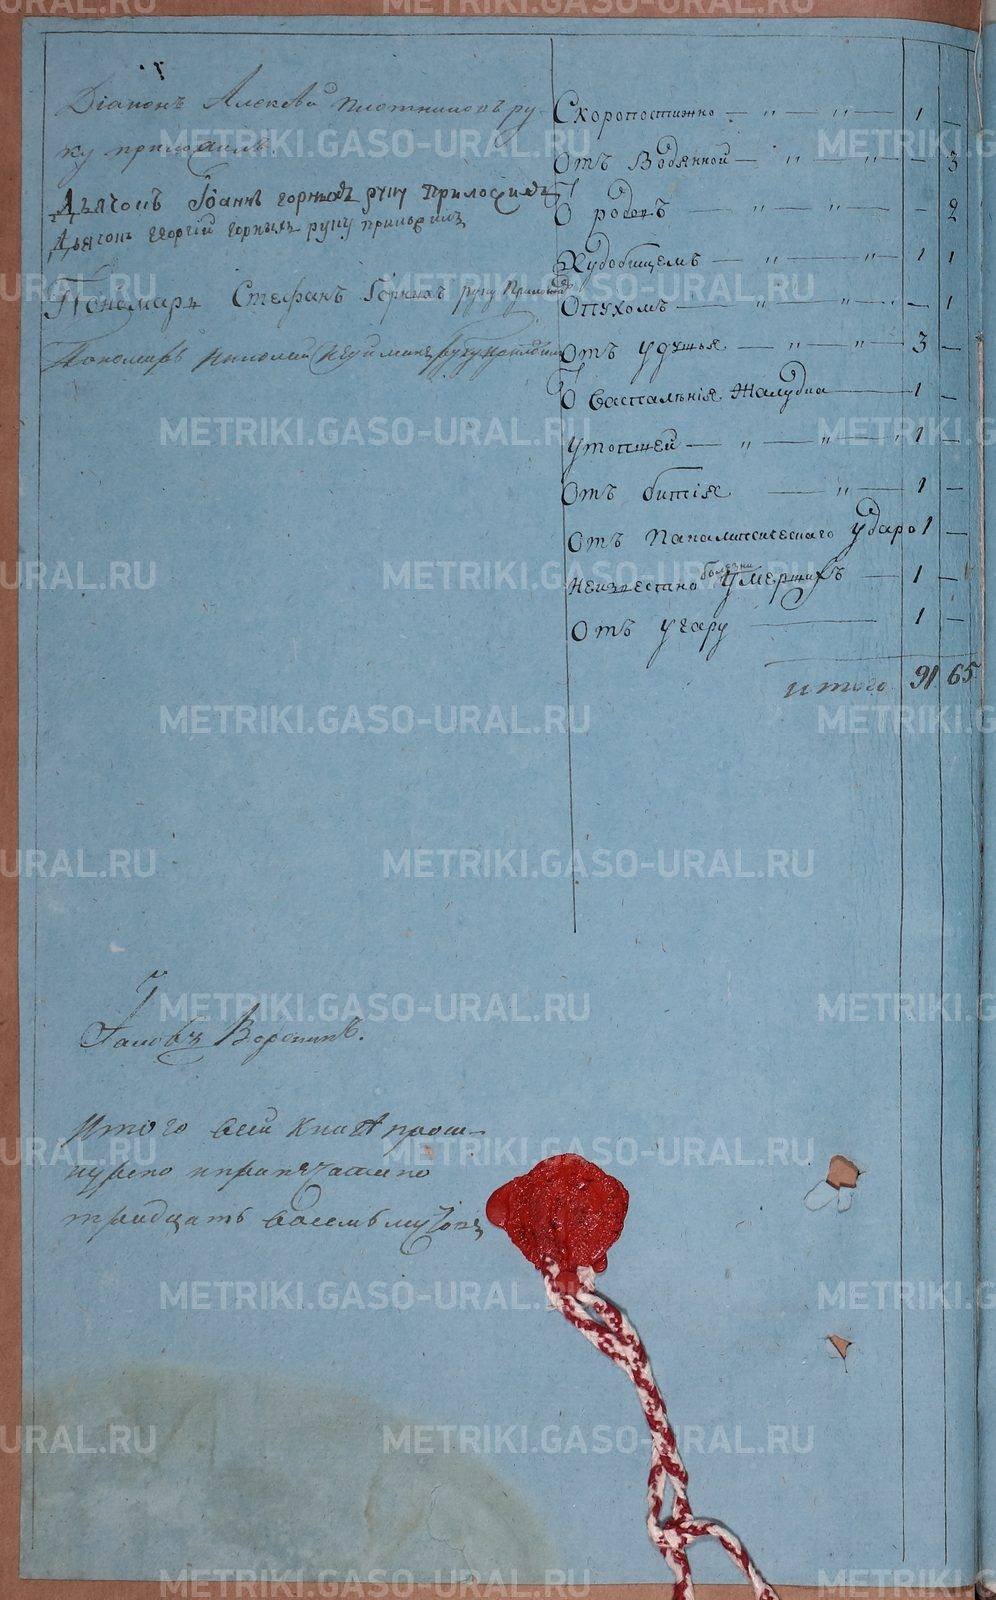 Діаконъ Алексѣй Плотниковъ ру-
ку приложилъ.
Дьячокъ Іоаннъ горныхъ руку Приложилъ
Дьячокъ георгій горныхъ руку приложилъ
Пономарь Стефанъ Горныхъ руку Приложилъ
Пономарь николай руку приложилъ
Скоропостижно — „ — „ — 1 —
Отъ Водяной — „ — „ — 3
О родотъ — „ — „ — 2
Худобищемъ — „ — „ — 1 1
Опухомъ — „ — „ — 1
Отъ удушья — „ — „ — 3 —
О васпаленія Жалудка — 1 —
утопшей — „ — „ — 1 —
Отъ битія — „ — 1 —
Отъ Паралитическаго удара 1 —
Неизвестно болезни Умершихъ — 1 —
Отъ угару — 1 —
итого 91 65
Іаковъ Воронинъ.
Итого всей книгѣ прош-
нурено и припечатано
тридцать восемь
METRIKI.GASO-URAL.RU